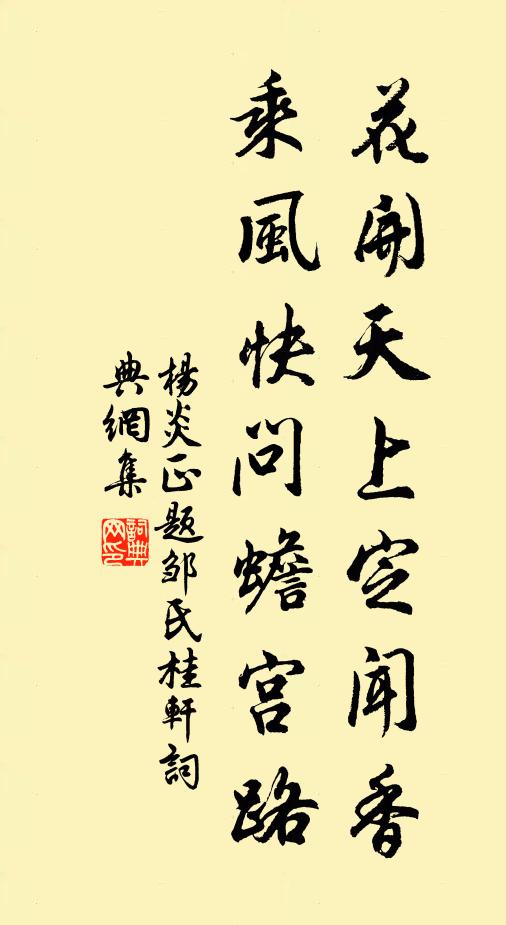 花開天上定聞香
乘風快問蟾宮路
楊炎正題邹氏桂軒詞
典網集
詞典
网印